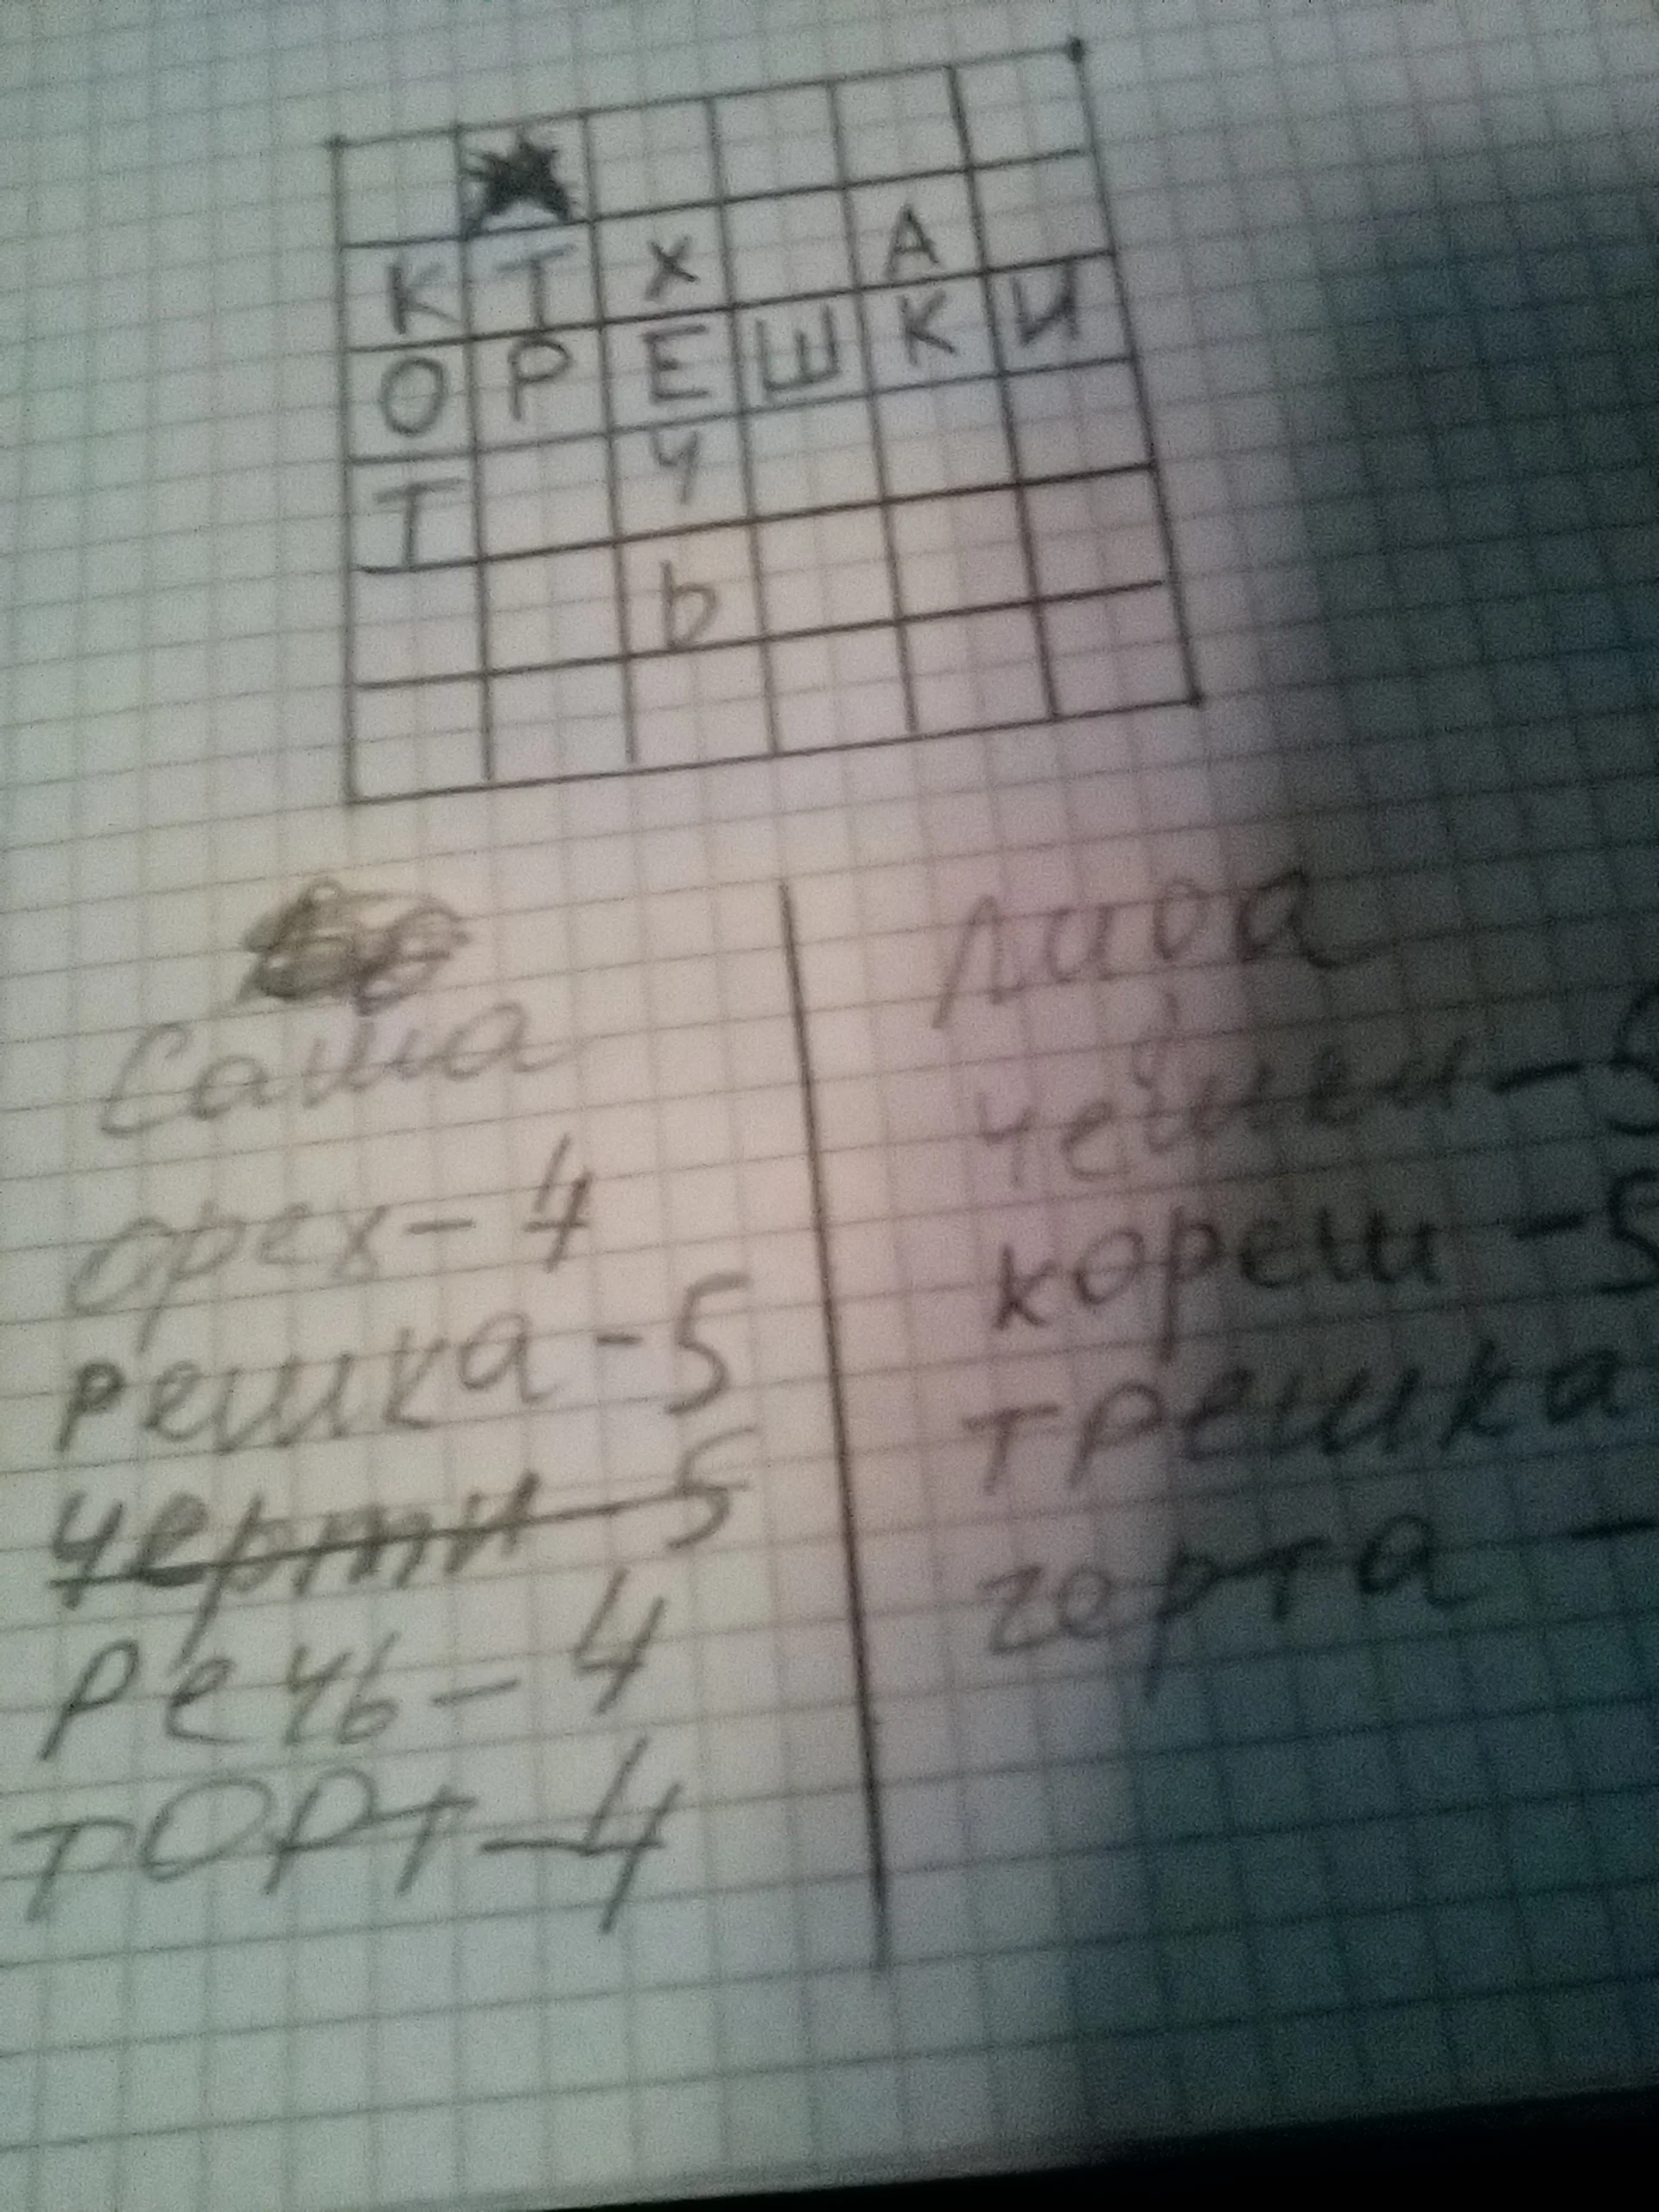 К Т Х А
О Р Е Ш К И
Т Ч
Ь
Саша
орех - 4
решка - 5
черти - 5
речь - 4
торт - 4
Лиза
чешки - 5
кореш - 5
трешка
черта -